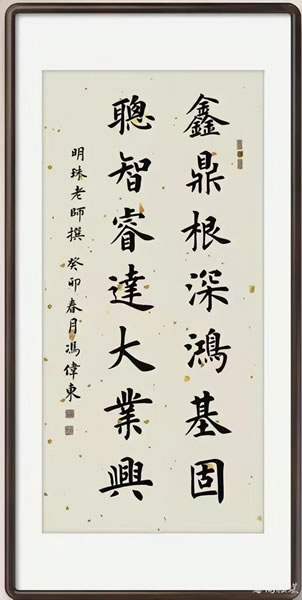 鑫鼎根深鴻基固
聰智睿達大業興
明珠老師撰 癸卯春月馮偉東